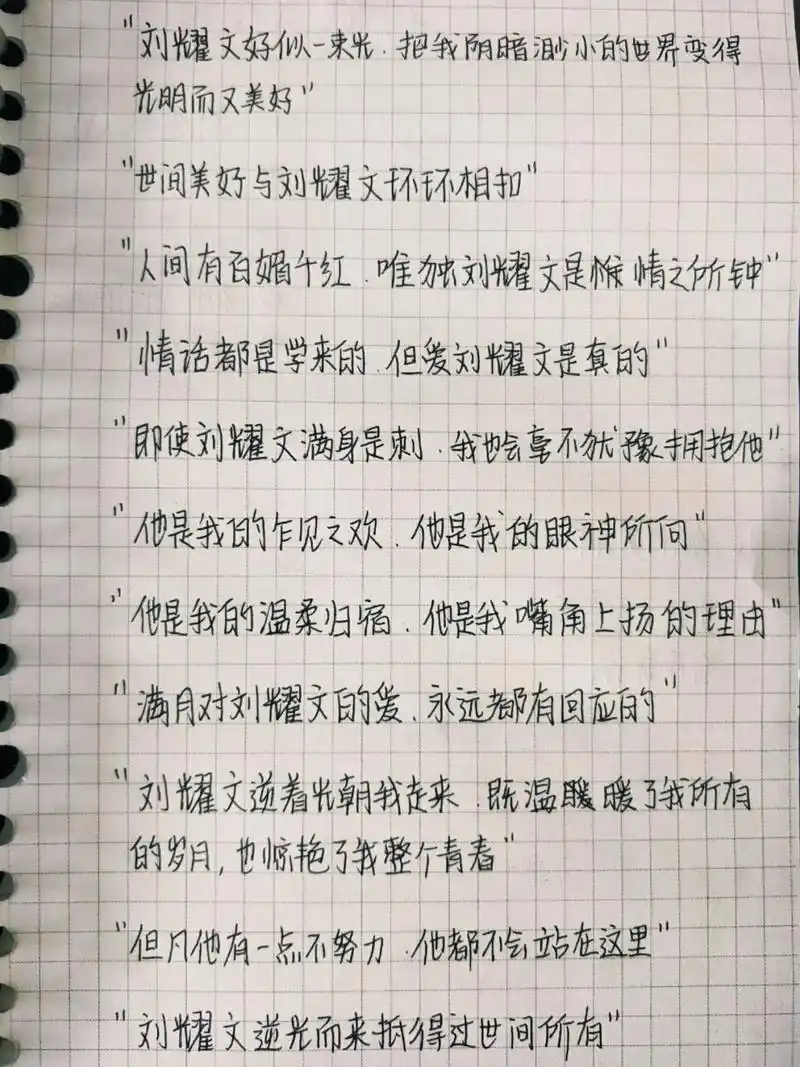 "刘耀文好似一束光.把我阴暗渺小的世界变得
光明而又美好"
"世间美好与刘耀文环环相扣"
"人间有百媚千红.唯独刘耀文是 情之所钟"
"情话都是学来的.但爱刘耀文是真的"
"即使刘耀文满身是刺.我也会毫不犹豫拥抱他"
"他是我的乍见之欢.他是我的眼神所向"
"他是我的温柔归宿.他是我嘴角上扬的理由"
"满月对刘耀文的爱.永远都有回应的"
"刘耀文逆着光朝我走来.既温暖暖了我所有
的岁月,也惊艳了我整个青春"
"但凡他有一点不努力.他都不会站在这里"
"刘耀文逆光而来抵得过世间所有"